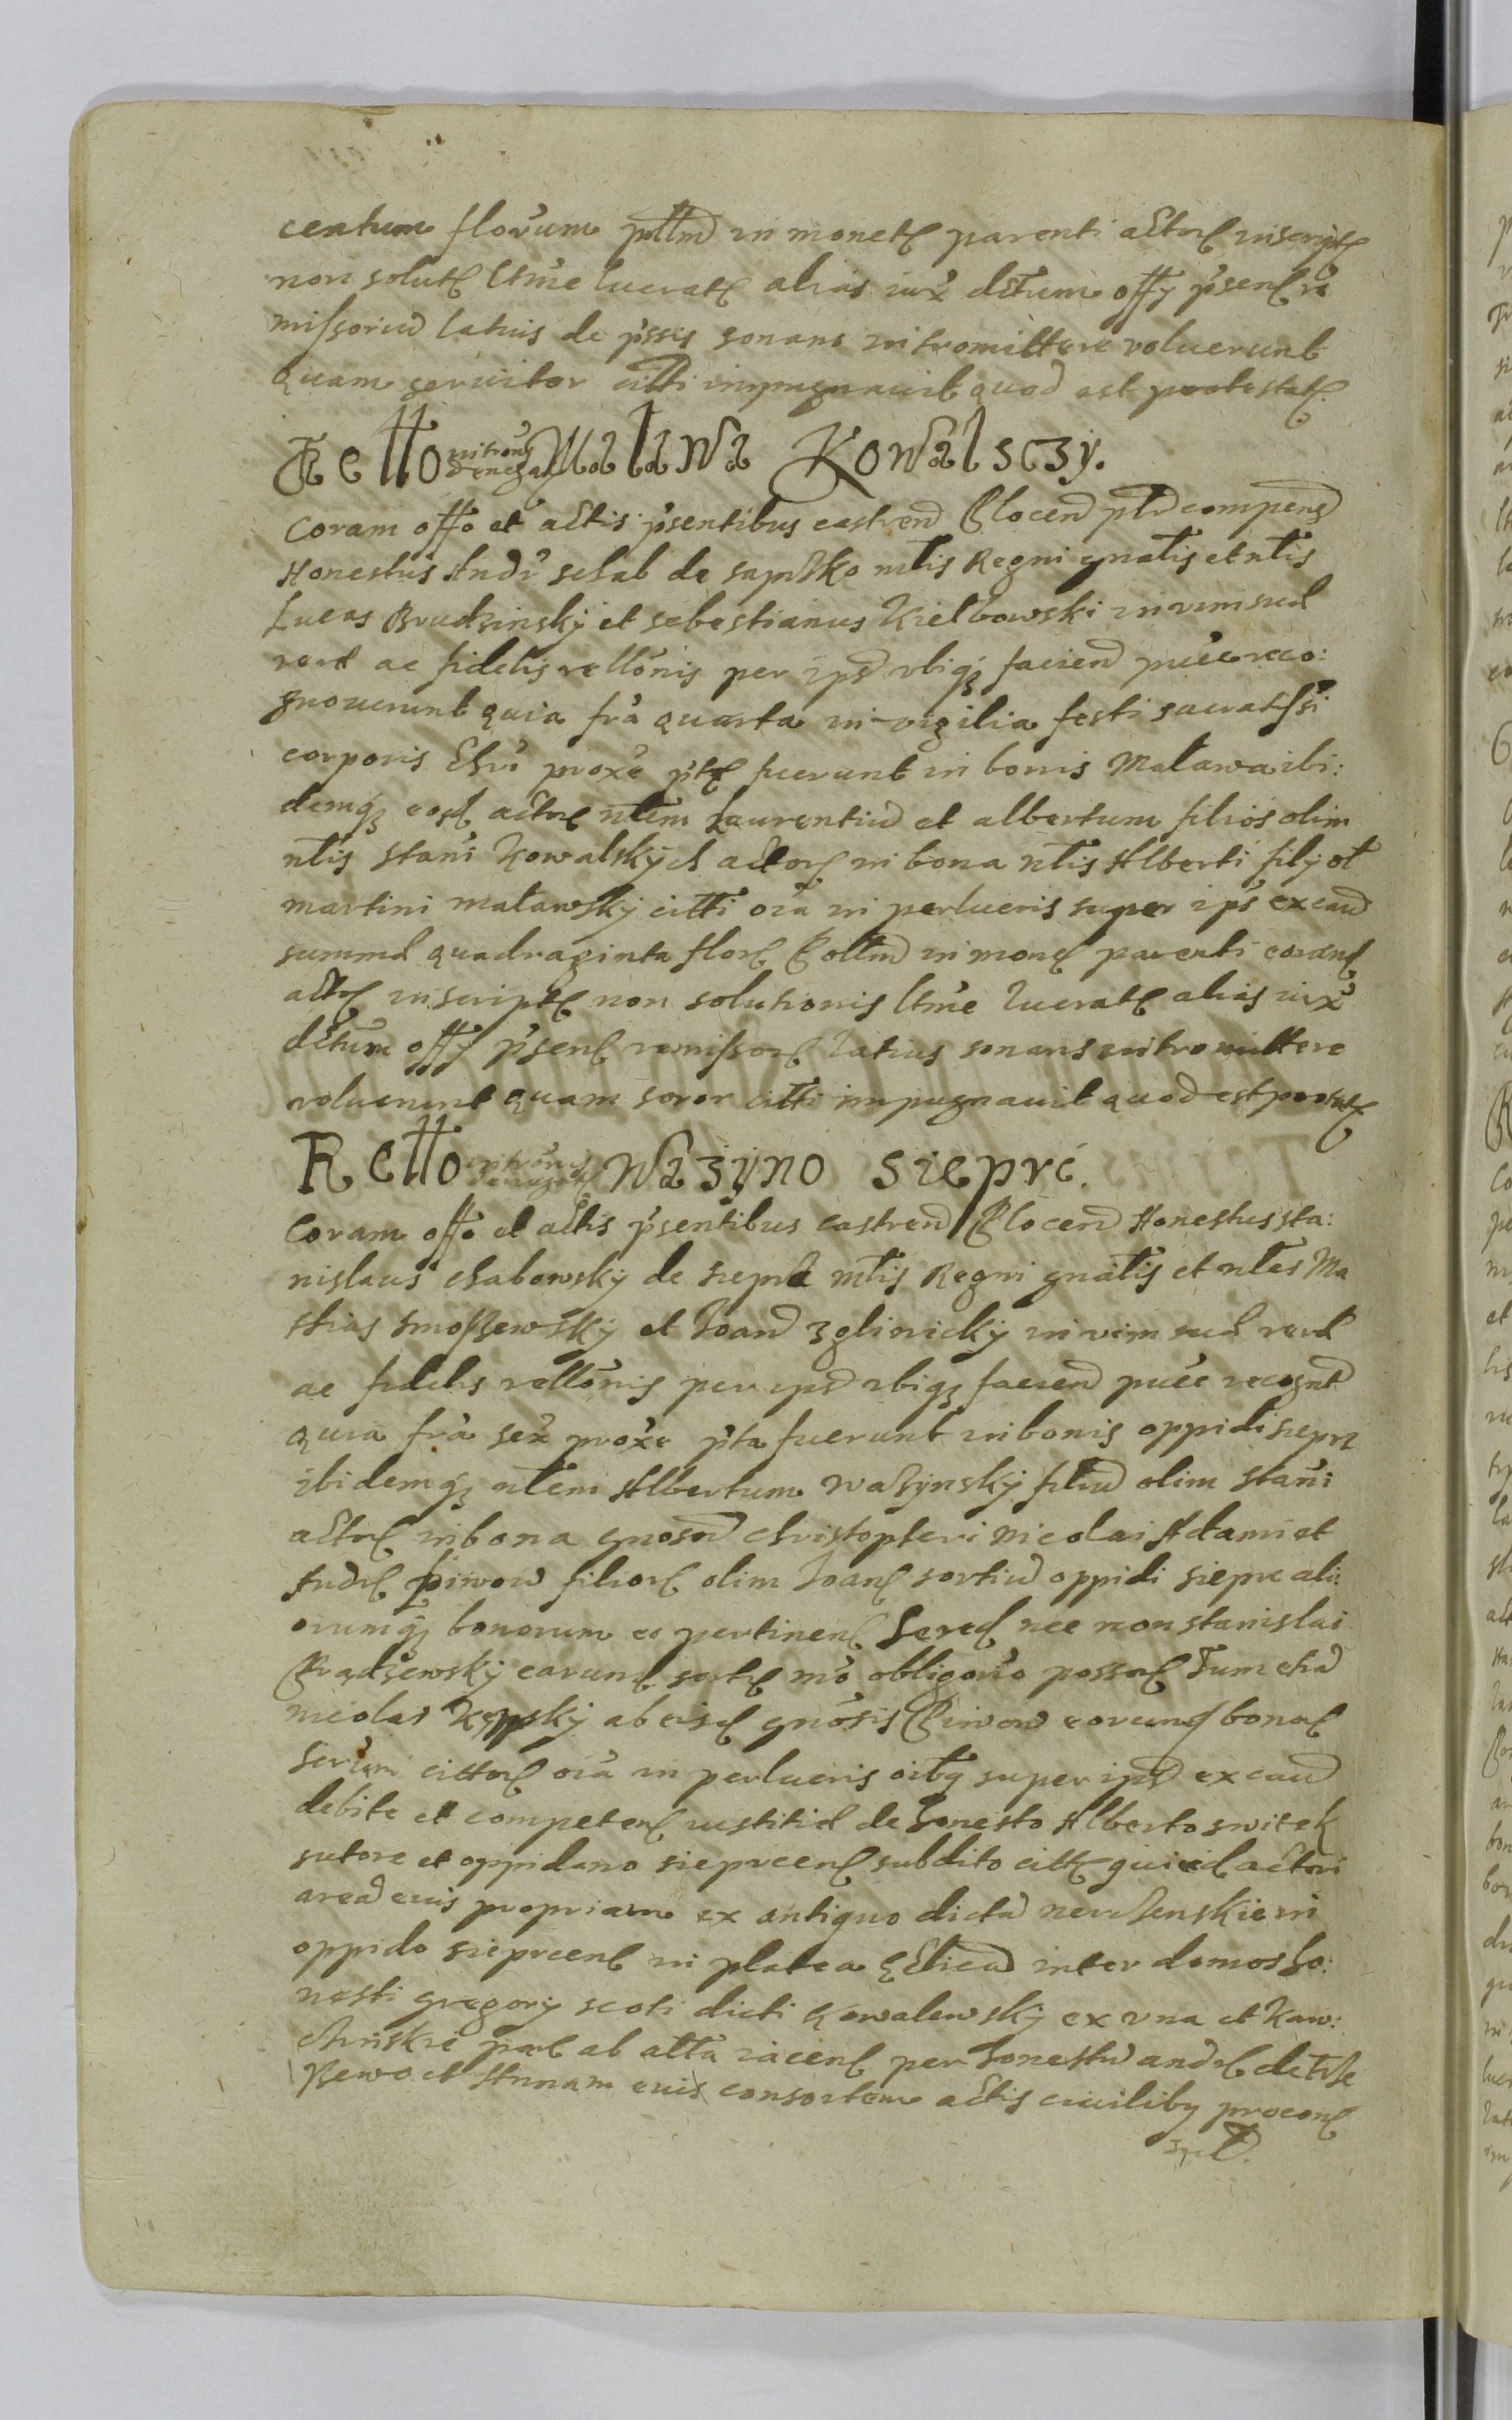 centum florum pollīn in monet parenti actor inscript
non solut ltīme lucrat alias iux dctum offy p̃sen re
missoriū latius de pssis sonans intromittere voluerunt
quam servitor citti impugnavit quod est protestat
Rello intrōis denegat Malawa Kowalsczÿ.
Coram offo et actis p̃sentibus castren Plocen plr compens
Honestus Andr schab de mtis Regni gnatis et ntis
Lucas Brudzinskÿ et Sebestianus Kielbowski in vim suæ
veræ ac fidelis rellōnis per ips ubiqȝ facien puce reco:
gnoverunt quia fr̃a quarta in vigilia festi sacratissi
corporis Chri proxe p̃t fuerunt in bonis Maława ibi:
demqȝ eosd actor ntem Laurentiū et albertum filios olim
ntis Stani Kowalskÿch actor in bona ntis Alberti filÿ ol
martini maławskÿ citti oia in perlucris super ips ex caū
summæ quadraginta flor Pollīn in mon parenti eorund
actor inscript non solutionis ltīme lucrat alias iux
dctum offy p̃sen remissor latius sonans intromittere
voluerunt quam soror citti impugnavit quod est protest
Rello intrōis denegat Wazÿno Sieprc.
Coram offo et actis p̃sentibus castren Plocen Honestus Sta:
nislaus chabowskÿ de Sieprc mtis Regni gnatis et ntes Ma
thias Smoszewskÿ et Joan Zglinickÿ in vim suæ veræ
ac fidelis rellōnis per ips ubiqȝ facien puce recognt
quia fr̃a sex proxe p̃ta fuerunt in bonis oppidi Sieprc
ibidemqȝ ntem Albertum Wazÿnskÿ filiū olim Stani
actor in bona gnosor Christopheri Nicolai Adami et
Andr Piwow filior olim Joan sortiū oppidi Sieprc ali:
orumqȝ bonorum eo pertinen hered nec non Stanislai
Prądzewskÿ earund sort mo obligorio possor Tum etiā
nicolai Kępskÿ ab eisd gnosis Piwow eorund bonor
citator oia in perlucris oibꝫ super ips ex caū
debite et competen iustitiæ de honesto Alberto Switek
sutore et oppidano Sieprcen subdito citt qui eid actori
areā eius propriam ex antiquo dictā in
oppido Sieprcen in platea inter domos ho:
nesti gregorÿ scoti dicti Kowalewskÿ ex una et Kaw:
par ab alta iacen per honestū andr
et Annam eius consortem actis civilibꝫ procon